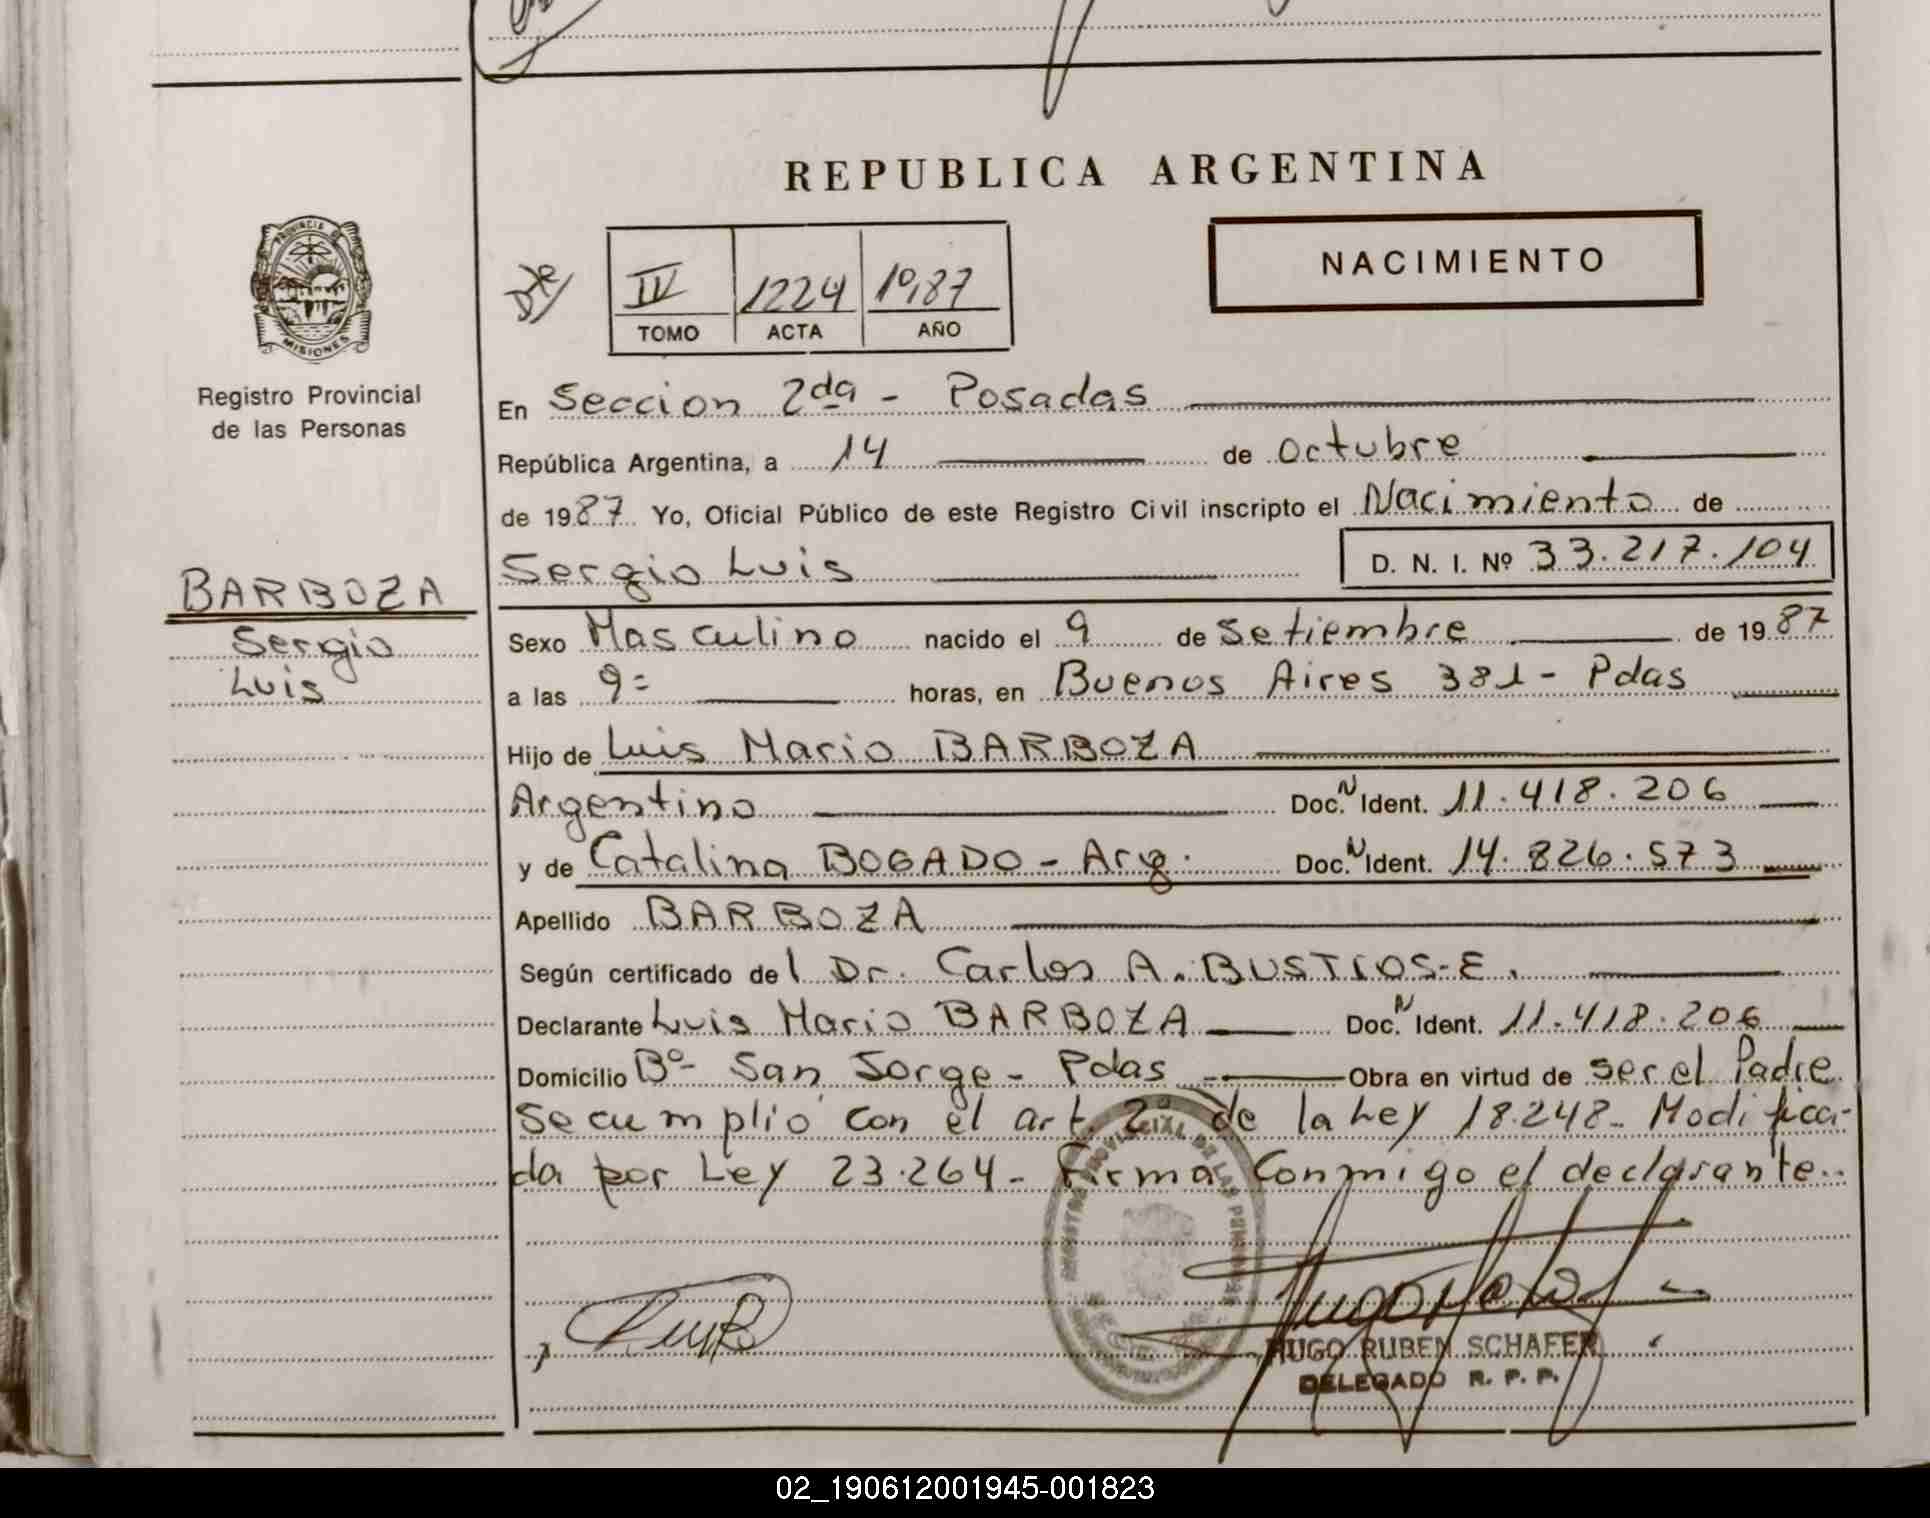 REPUBLICA ARGENTINA
PROVINCIA DE
MISIONES
Registro Provincial
de las Personas
IV 1224 1987
TOMO ACTA AÑO
NACIMIENTO
En Seccion 2da - Posadas
República Argentina, a 14 de Octubre
de 1987 Yo, Oficial Público de este Registro Civil inscripto el Nacimiento de
Sergio Luis D. N. I. Nº 33.217.104
BARBOZA
Sergio
Luis
Sexo Masculino nacido el 9 de Setiembre de 1987
a las 9= horas, en Buenos Aires 381- Pdas
Hijo de Luis Mario BARBOZA
Argentino Doc.N Ident. 11.418.206
y de Catalina BOGADO - Arg. Doc.N Ident. 14.826.573
Apellido BARBOZA
Según certificado del Dr. Carlos A. BUSTIOS-E.
Declarante Luis Mario BARBOZA Doc.N Ident. 11.418.206
Domicilio Bº- San Jorge - Pdas Obra en virtud de ser el Padre
Se cumplió con el art. 2º de la Ley 18.248- Modifica-
da por Ley 23.264- Firma Conmigo el declarante..
HUGO RUBEN SCHAFER
DELEGADO R. P. P.
02_190612001945-001823